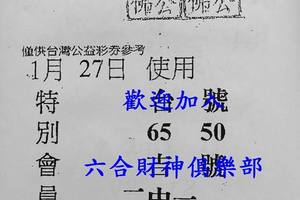 佛公 佛公
僅供台灣公益彩券參考
1月 27日 使用
特 台 號
歡迎加水
別 65 50
會 吉 號
六合財神俱樂部
員 二中一